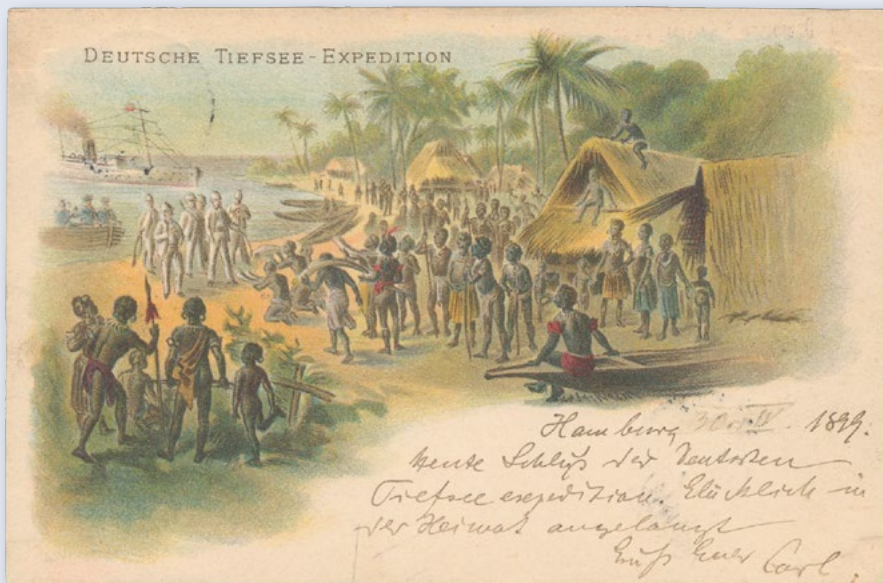 DEUTSCHE TIEFSEE-EXPEDITION
Hamburg 30. IV. 1899.
Heute Schluß der Deutschen
Tiefsee expedition. Glücklich in
der Heimat angelangt
Gruß Euer Carl.